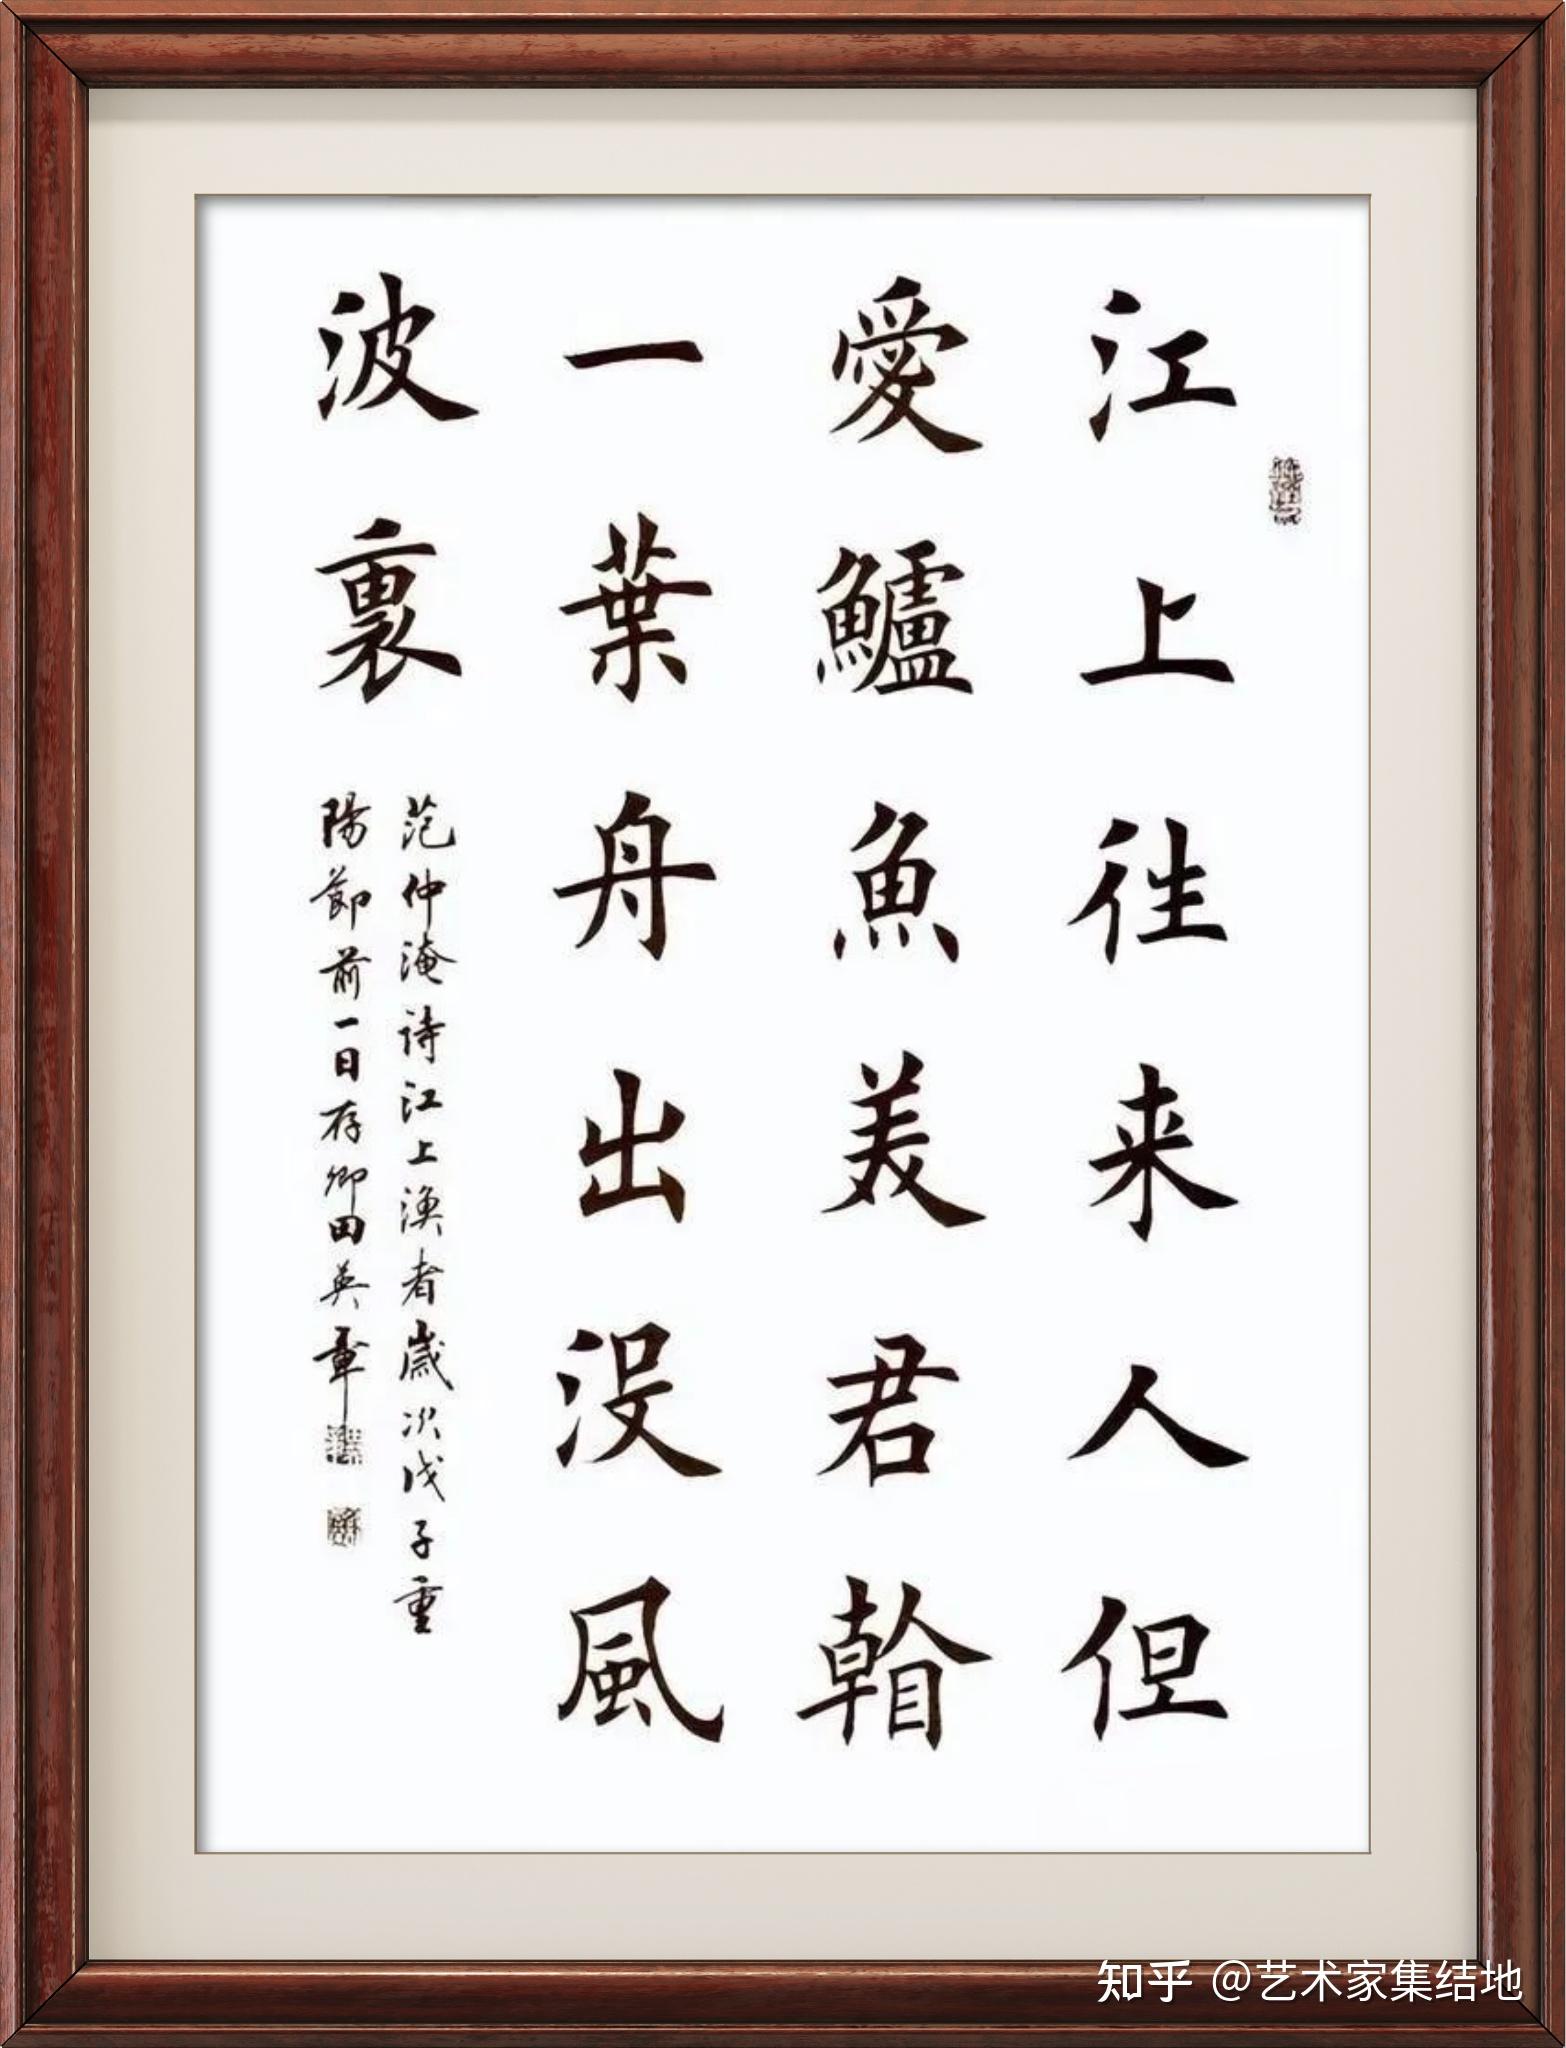 江上徃来人但
愛鱸魚美君
一葉舟出没風
波裏
范仲淹诗江上渔者歲次戊子重
陽節前一日存卿田英章
知乎 @艺术家集结地